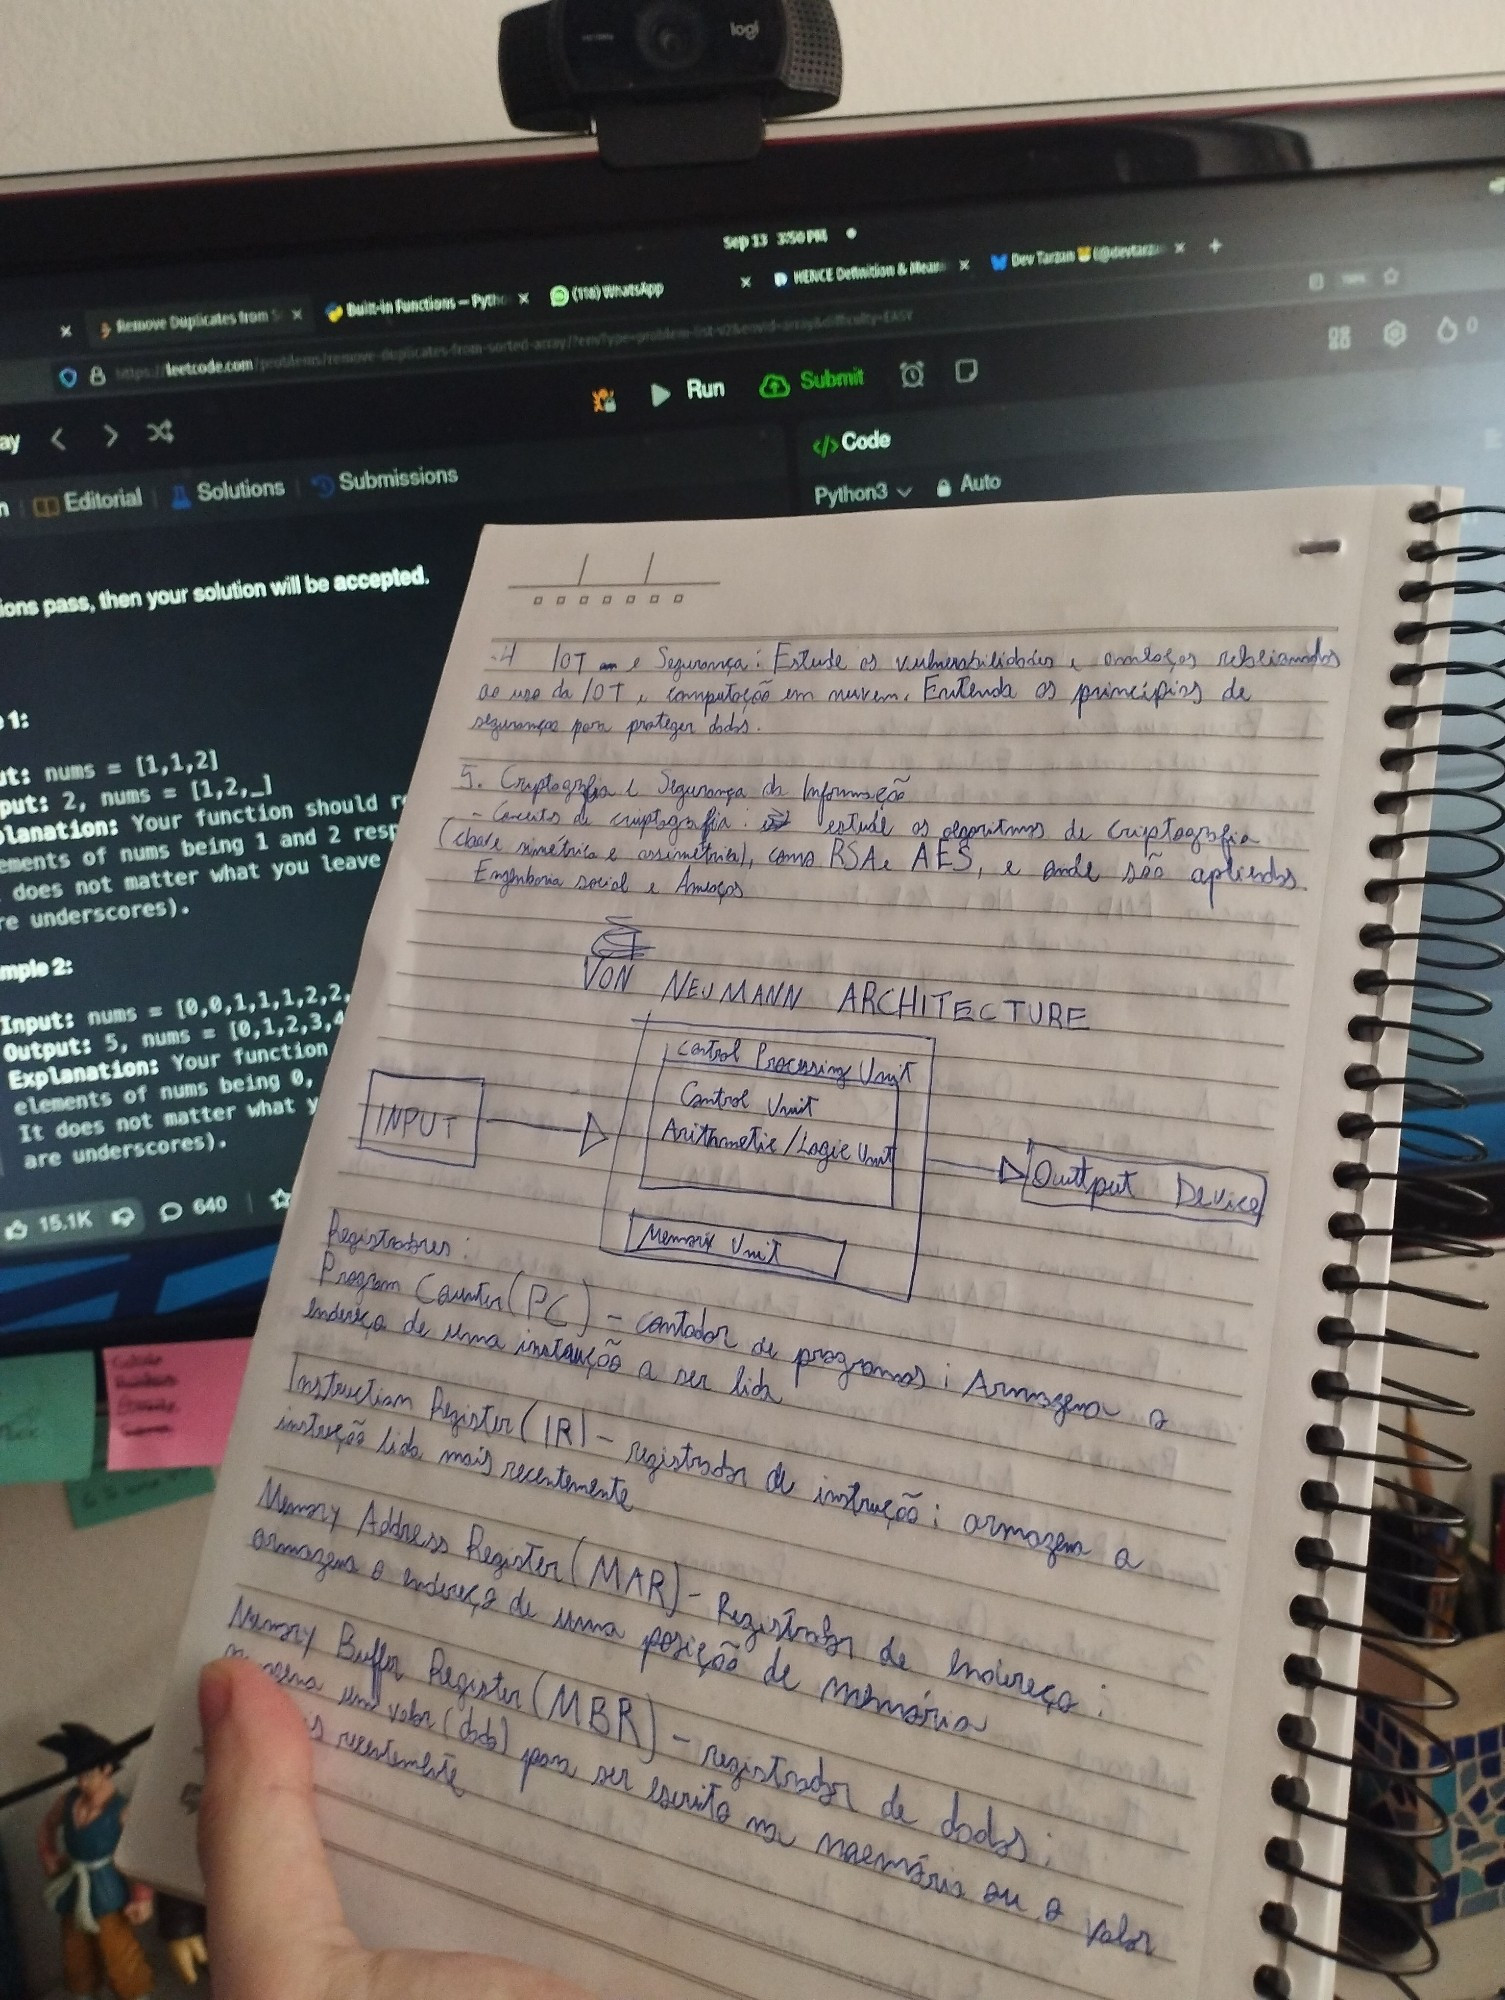 logi
Sep 13 3:50 PM
Remove Duplicates from S
Built-in Functions — Pyth
(116) WhatsApp
HENCE Definition & Mean
Dev Tarzan (@devtarza
https://leetcode.com/problems/remove-duplicates-from-sorted-array/?envType=problem-list-v2&envId=array&difficulty=EASY
ay
Run
Submit
0
Editorial
Solutions
Submissions
</> Code
Python3
Auto
ions pass, then your solution will be accepted.
1:
ut: nums = [1,1,2]
put: 2, nums = [1,2,_]
planation: Your function should re
ements of nums being 1 and 2 resp
does not matter what you leave
re underscores).
mple 2:
Input: nums = [0,0,1,1,1,2,2,
Output: 5, nums = [0,1,2,3,4
Explanation: Your function
elements of nums being 0,
It does not matter what y
are underscores).
15.1K
640
.4 IOT e Segurança: Estude as vulnerabilidades e ameaças relacionados
ao uso da IOT e computação em nuvem. Entenda os princípios de
segurança para proteger dados.
5. Criptografia e Segurança da Informação
- Conceito de criptografia: estude os algoritmos de criptografia
(chave simétrica e assimétrica), como RSA e AES, e onde são aplicados
Engenharia social e Ameaças
VON NEUMANN ARCHITECTURE
Control Processing Unit
Control Unit
Arithmetic/Logic Unit
INPUT
Outtput Device
Memory Unit
Registradores:
Program Counter (PC) - contador de programas: Armazena o
endereço de uma instrução a ser lida
Instruction Register (IR) - registrador de instrução: armazena a
instrução lida mais recentemente
Memory Address Register (MAR) - Registrador de endereço:
armazena o endereço de uma posição de memória
Memory Buffer Register (MBR) - registrador de dados:
um valor (dado) para ser escrito na maemória ou o valor
recentemente